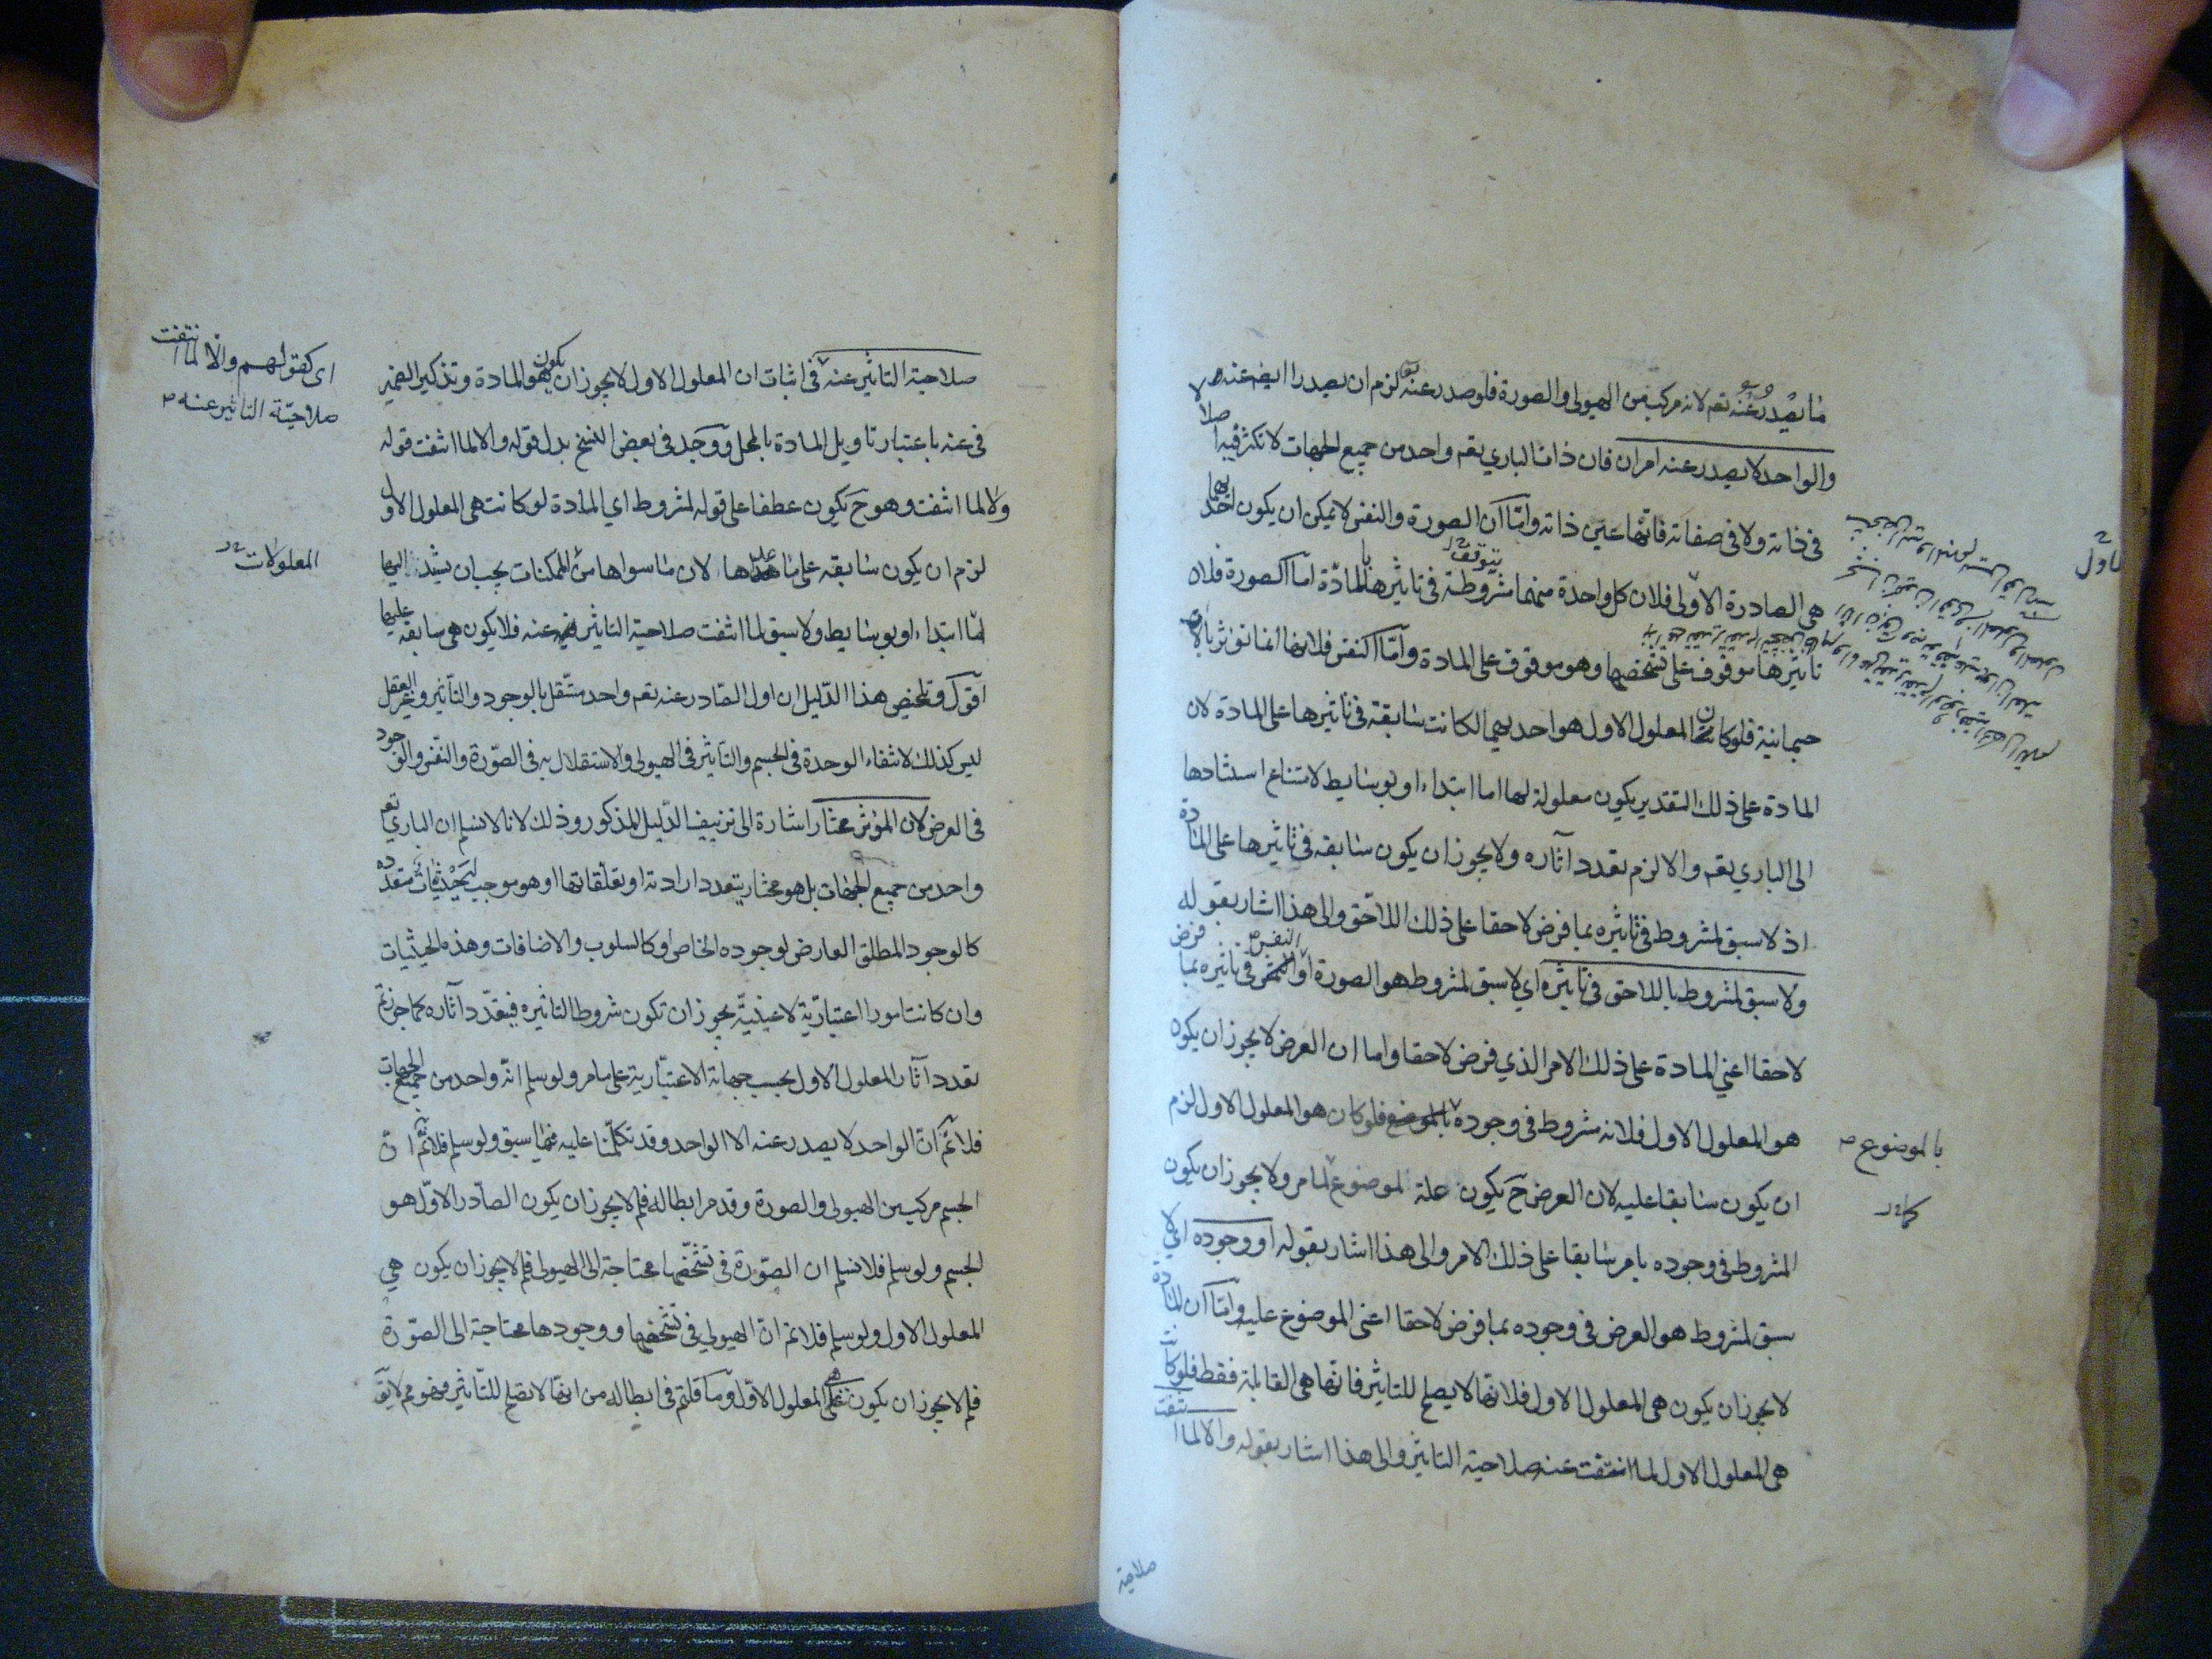 ما يصدر عنه تعم لانه مركب من الهيولى والصورة فلو صدر عنه لزم ان يصدرا ايضم عنه
والواحد لا يصدر عنه امران فان ذات الباري تعم واحد من جميع الجهات لا تكثر فيه اصلا لا
فى ذاته ولا فى صفاته فانها عين ذاته وامّا ان الصورة والنفس لا يمكن ان يكون احديهما
هى الصادرة الاولى فلان كل واحدة منهما مشروطة فى تاثيرها بالمادّة اما الصورة فلان
تاثيرها موقوف على تشخصها وهو موقوف على المادة وامّا النفس فلانها انما تؤثر بالات
جسمانية فلو كان المعلول الاول هو احديهما لكانت سابقة فى تاثيرها على المادة لان
المادة على ذلك التقدير يكون معلولة لها اما ابتداء او بوسايط لامتناع استنادها
الى الباري تعم والا لزم تعدد آثاره ولا يجوز ان يكون سابقه فى تاثيرها على المادة
اذ لا سبق لمشروط فى تاثيره بما فرض لاحقا على ذلك اللاحق والى هذا اشار بقوله
ولا سبق لمشروط باللاحق فى تاثيره اي لا سبق لمشروط هو الصورة او النفس فى تاثيره بما فرض
لاحقا اعني المادة على ذلك الامر الذي فرض لاحقا واما ان العرض لا يجوز ان يكون
هو المعلول الاول فلانه مشروط فى وجوده بالموضوع فلو كان هو المعلول الاول لزم
ان يكون سابقا عليه لان العرض ح يكون علة الموضوع لما مر ولا يجوز ان يكون
المشروط فى وجوده بامر سابقا على ذلك الامر والى هذا اشار بقوله او وجوده اي لا
سبق لمشروط هو العرض فى وجوده بما فرض لاحقا اعنى الموضوع عليه وامّا ان المادة
لا يجوز ان يكون هى المعلول الاول فلانها لا يصلح للتاثير فانها هى القابلة فقط فلو كانت
هى المعلول الاول لما انتفت عنه صلاحية التاثير والى هذا اشار بقوله والا لما انتفت
بالموضوع
صلاحية
صلاحية التاثير عنه فى اثبات ان المعلول الاول لا يجوز ان يكون هو المادة وتذكير الضمير
فى عنه باعتبار تاويل المادة بالمحل ووجد فى بعض النسخ بدل قوله والا لما انتفت قوله
ولا لما انتفت وهو ح يكون عطفا على قوله لمشروط اي المادة لو كانت هى المعلول الاول
لزم ان يكون سابقه على ما عداها لان ما سواها من الممكنات يجب ان يستند اليها
امّا ابتداء او بوسايط ولا سبق لما انتفت صلاحية التاثير عنه فلا يكون هى سابقة عليها
اقول وتلخيص هذا الدّليل ان اول الصّادر عنه تعم واحد مستّقل بالوجود والتّاثير وغير العقل
ليس كذلك لانتفاء الوحدة فى الجسم والتّاثير فى الهيولى والاستقلال به فى الصّورة والنّفس والوجود
فى العرض لان المؤثر مختار اشارة الى تزييف الدّليل المذكور وذلك لانا لا نسلم ان الباري تعم
واحد من جميع الجهات بل هو مختار يتعدد ارادته او تعلقاتها او هو موجب لحيثيات متعدده
كالوجود المطلق العارض لوجوده الخاص او كالسلوب والاضافات وهذه الحيثيات
وان كانت امورا اعتباريّة لا عينيّة يجوز ان تكون شروطا لتاثيره فيتعدّد آثاره كما جوزتم
تعدد آثار المعلول الاول بحسب جهاته الاعتبارية على ما مر ولو سلم انّه واحد من جميع الجهات
فلا نم ان الواحد لا يصدر عنه الا الواحد وقد تكلّمنا عليه فيما سبق ولو سلم فلا نم ان
الجسم مركب من الهيولى والصورة وقد مر ابطاله فلم لا يجوز ان يكون الصّادر الاوّل هو
الجسم ولو سلم فلا نسلم ان الصّورة فى تشخّصها محتاجة الى الهيولى فلم لا يجوز ان يكون هي
المعلول الاول ولو سلم فلا نم انّ الهيولي فى تشخصها ووجودها محتاجة الى الصّورة
فلم لا يجوز ان يكون هى المعلول الاوّل وما قلتم فى ابطاله من انها لا تصلح للتّاثير فهو مم لا يق
اى كقولهم والّا لما انتفت
صلاحيّة التاثير عنه
المعلولات